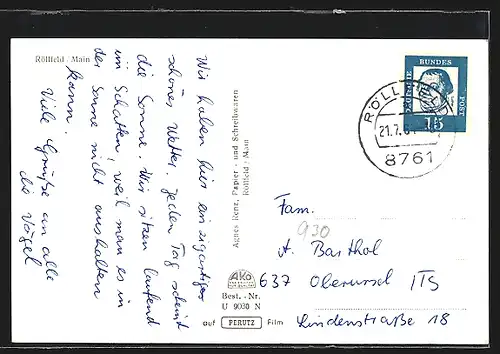 Röllfeld / Main
Wir haben hier ein einzigartiges
schönes Wetter. Jeden Tag scheint
die Sonne. Wir sitzen laufend
im Schatten, weil man es in
der Sonne nicht aushalten
kann.
Viele Grüße an alle
die Vögel
Agnes Renz, Papier - und Schreibwaren
Röllfeld / Main
AKO
Best. - Nr.
U 9030 N
auf PERUTZ Film
DEUTSCHE
BUNDES
POST
15
21.7.6
8761
Fam.
930
A. Barthol
637 Oberursel /TS
Lindenstraße 18